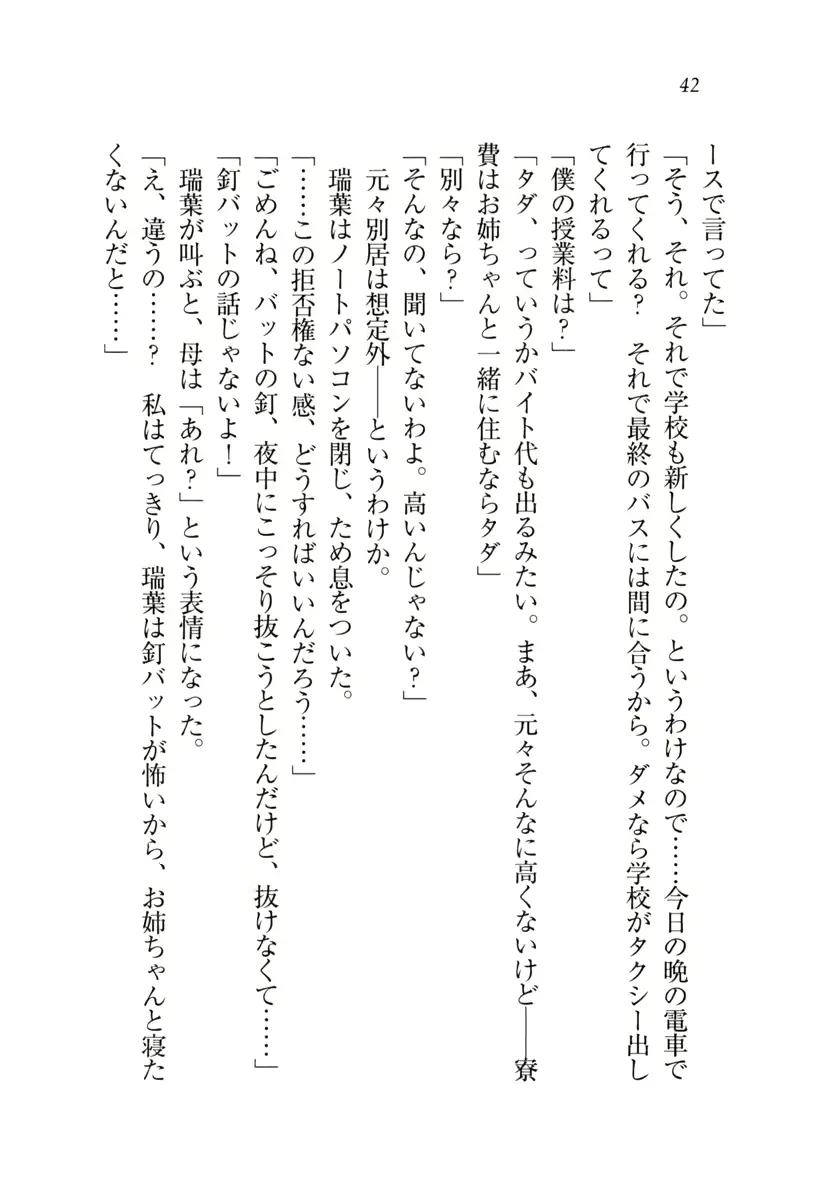 42
ースで言ってた」
「そう、それ。それで学校も新しくしたの。というわけなので……今日の晩の電車で
行ってくれる？　それで最終のバスには間に合うから。ダメなら学校がタクシー出し
てくれるって」
「僕の授業料は？」
「タダ、っていうかバイト代も出るみたい。まあ、元々そんなに高くないけど――寮
費はお姉ちゃんと一緒に住むならタダ」
「別々なら？」
「そんなの、聞いてないわよ。高いんじゃない？」
　元々別居は想定外――というわけか。
　瑞葉はノートパソコンを閉じ、ため息をついた。
「……この拒否権ない感、どうすればいいんだろう……」
「ごめんね、バットの釘、夜中にこっそり抜こうとしたんだけど、抜けなくて……」
「釘バットの話じゃないよ！」
　瑞葉が叫ぶと、母は「あれ？」という表情になった。
「え、違うの……？　私はてっきり、瑞葉は釘バットが怖いから、お姉ちゃんと寝た
くないんだと……」